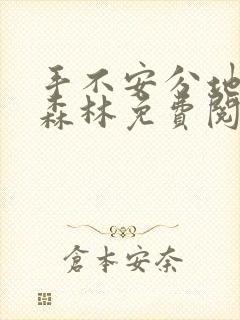 手不安分地
森林免費閱
倉本安奈